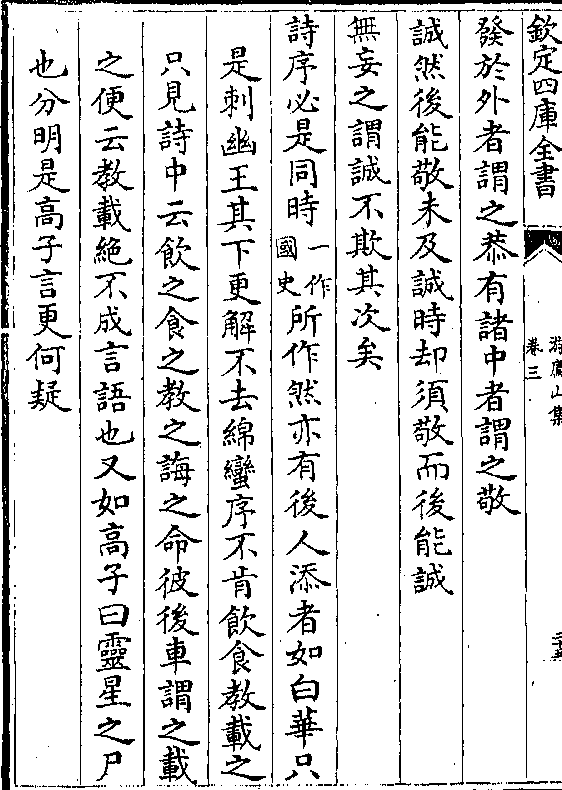 欽定四庫全書
游廌山集
卷三
發於外者謂之恭有諸中者謂之敬
誠然後能敬未及誠時却須敬而後能誠
無妄之謂誠不欺其次矣
詩序必是同時一作國史所作然亦有後人添者如白華只
是刺幽王其下更解不去綿蠻序不肯飲食教載之
只見詩中云飲之食之教之誨之命彼後車謂之載
之便云教載絶不成言語也又如高子曰靈星之尸
也分明是高子言更何疑